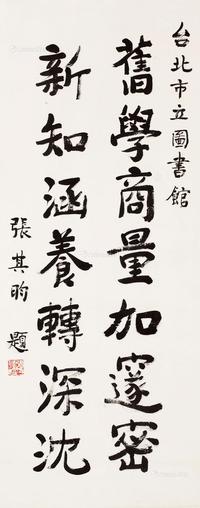 台北市立圖書館
舊學商量加邃密
新知涵養轉深沈
張其昀 題